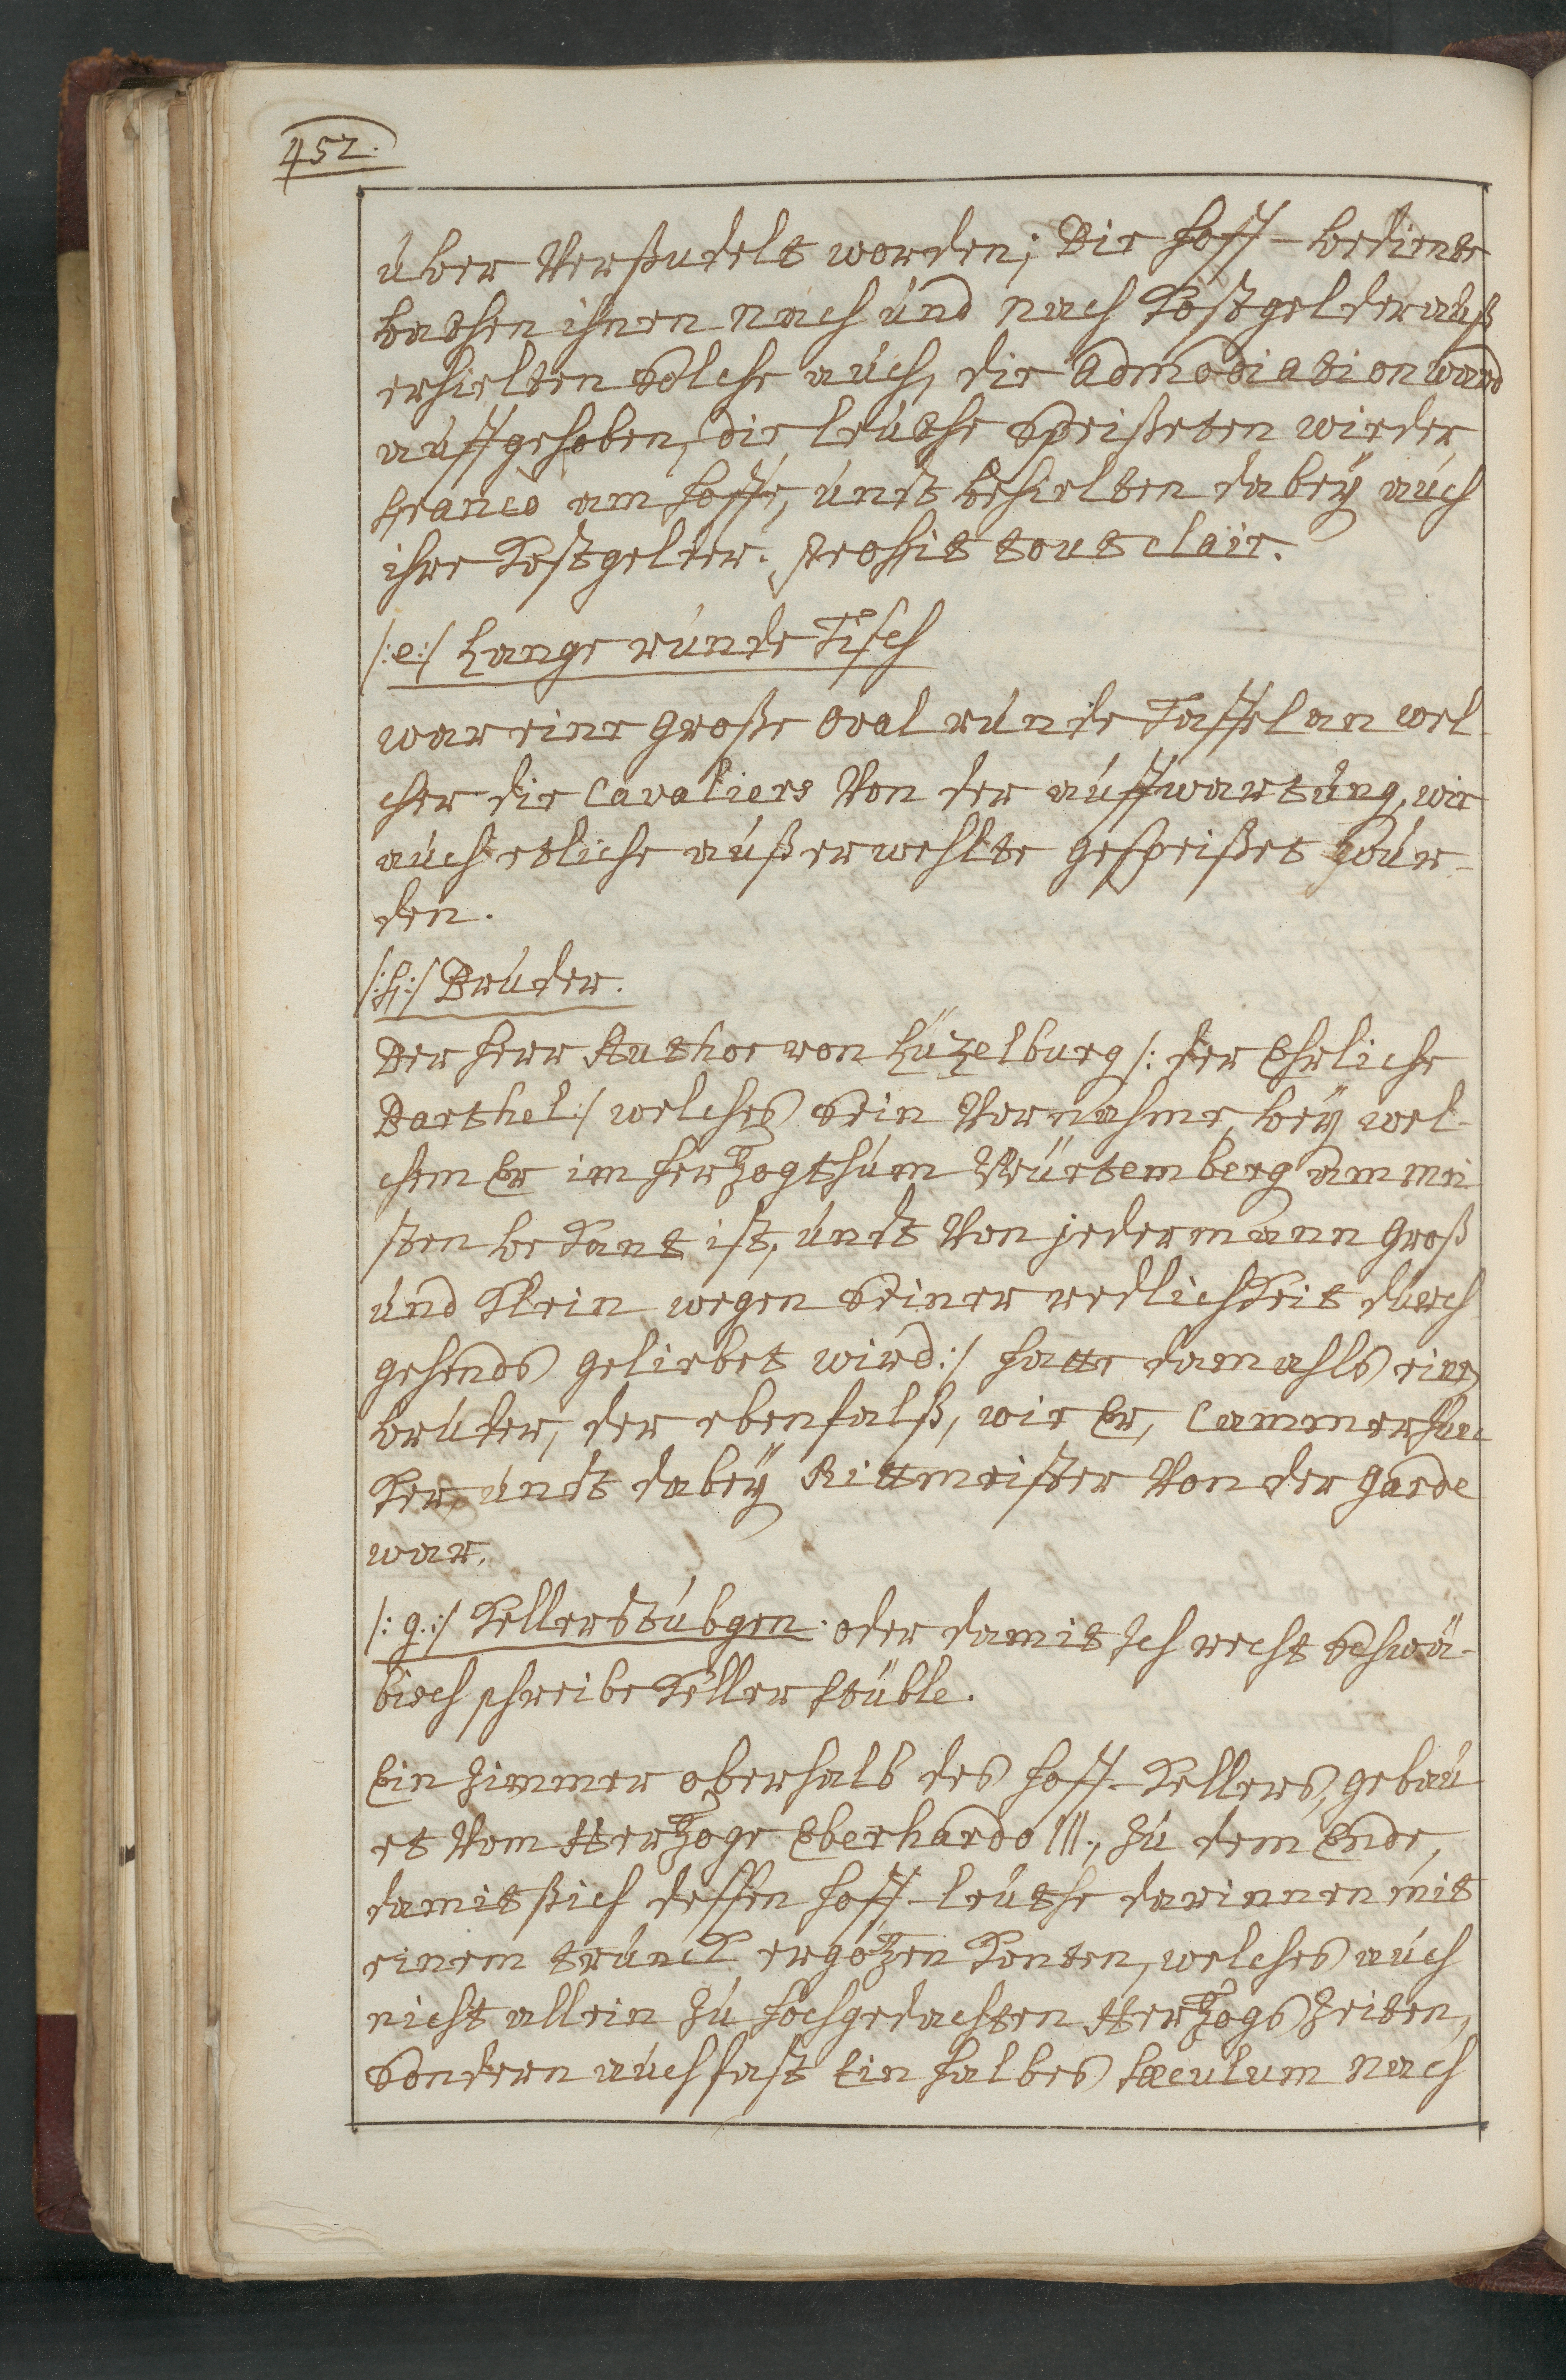 452.
über Versudelt worden; Die hoff-bediente
bathen ihnen nach und nach Kostgelder auß
erhielten solche auch, die Admodiation ward
auffgehoben, die leuthe speißeten wieder
franco am hoffe, undt behielten dabeÿ auch
ihre Kostgelter. Profit tout clair.
/:e:/ Lange runde Tisch
war eine große oval runde Taffel an wel-
cher die Cavaliers Von der auffwartung, wie
auch etliche außerwehlte gespeißet wur-
den.
/:f:/ Bruder.
Der herr Author von Lüzelburg /: der Ehrliche
Barthel:/ welches sein Vornahme, beÿ wel-
chem Er im herzogthum Würtemberg am mei
sten bekant ist, undt Von jedermann groß
und Klein wegen seiner redlichkeit durch
gehends geliebet wird:/ hatte damahls einen
bruder, der ebenfalß, wie Er, Cammerjun
ker undt dabeÿ Rittmeister Von der garde
war.
/:g:/ Kellerstübgen. oder damit Ich recht schwä-
bisch schreibe Keller stüble.
Ein Zimmer oberhalb des hoff-Kellers, gebau
et Vom Herzoge Eberhardo III., Zu dem Ende,
damit sich dessen hoff-leuthe darinnen mit
einem trunck ergötzen konten, welches auch
nicht allein Zu hochgedachten Herzogs Zeiten,
sondern auch fast Ein halbes sæculum nach